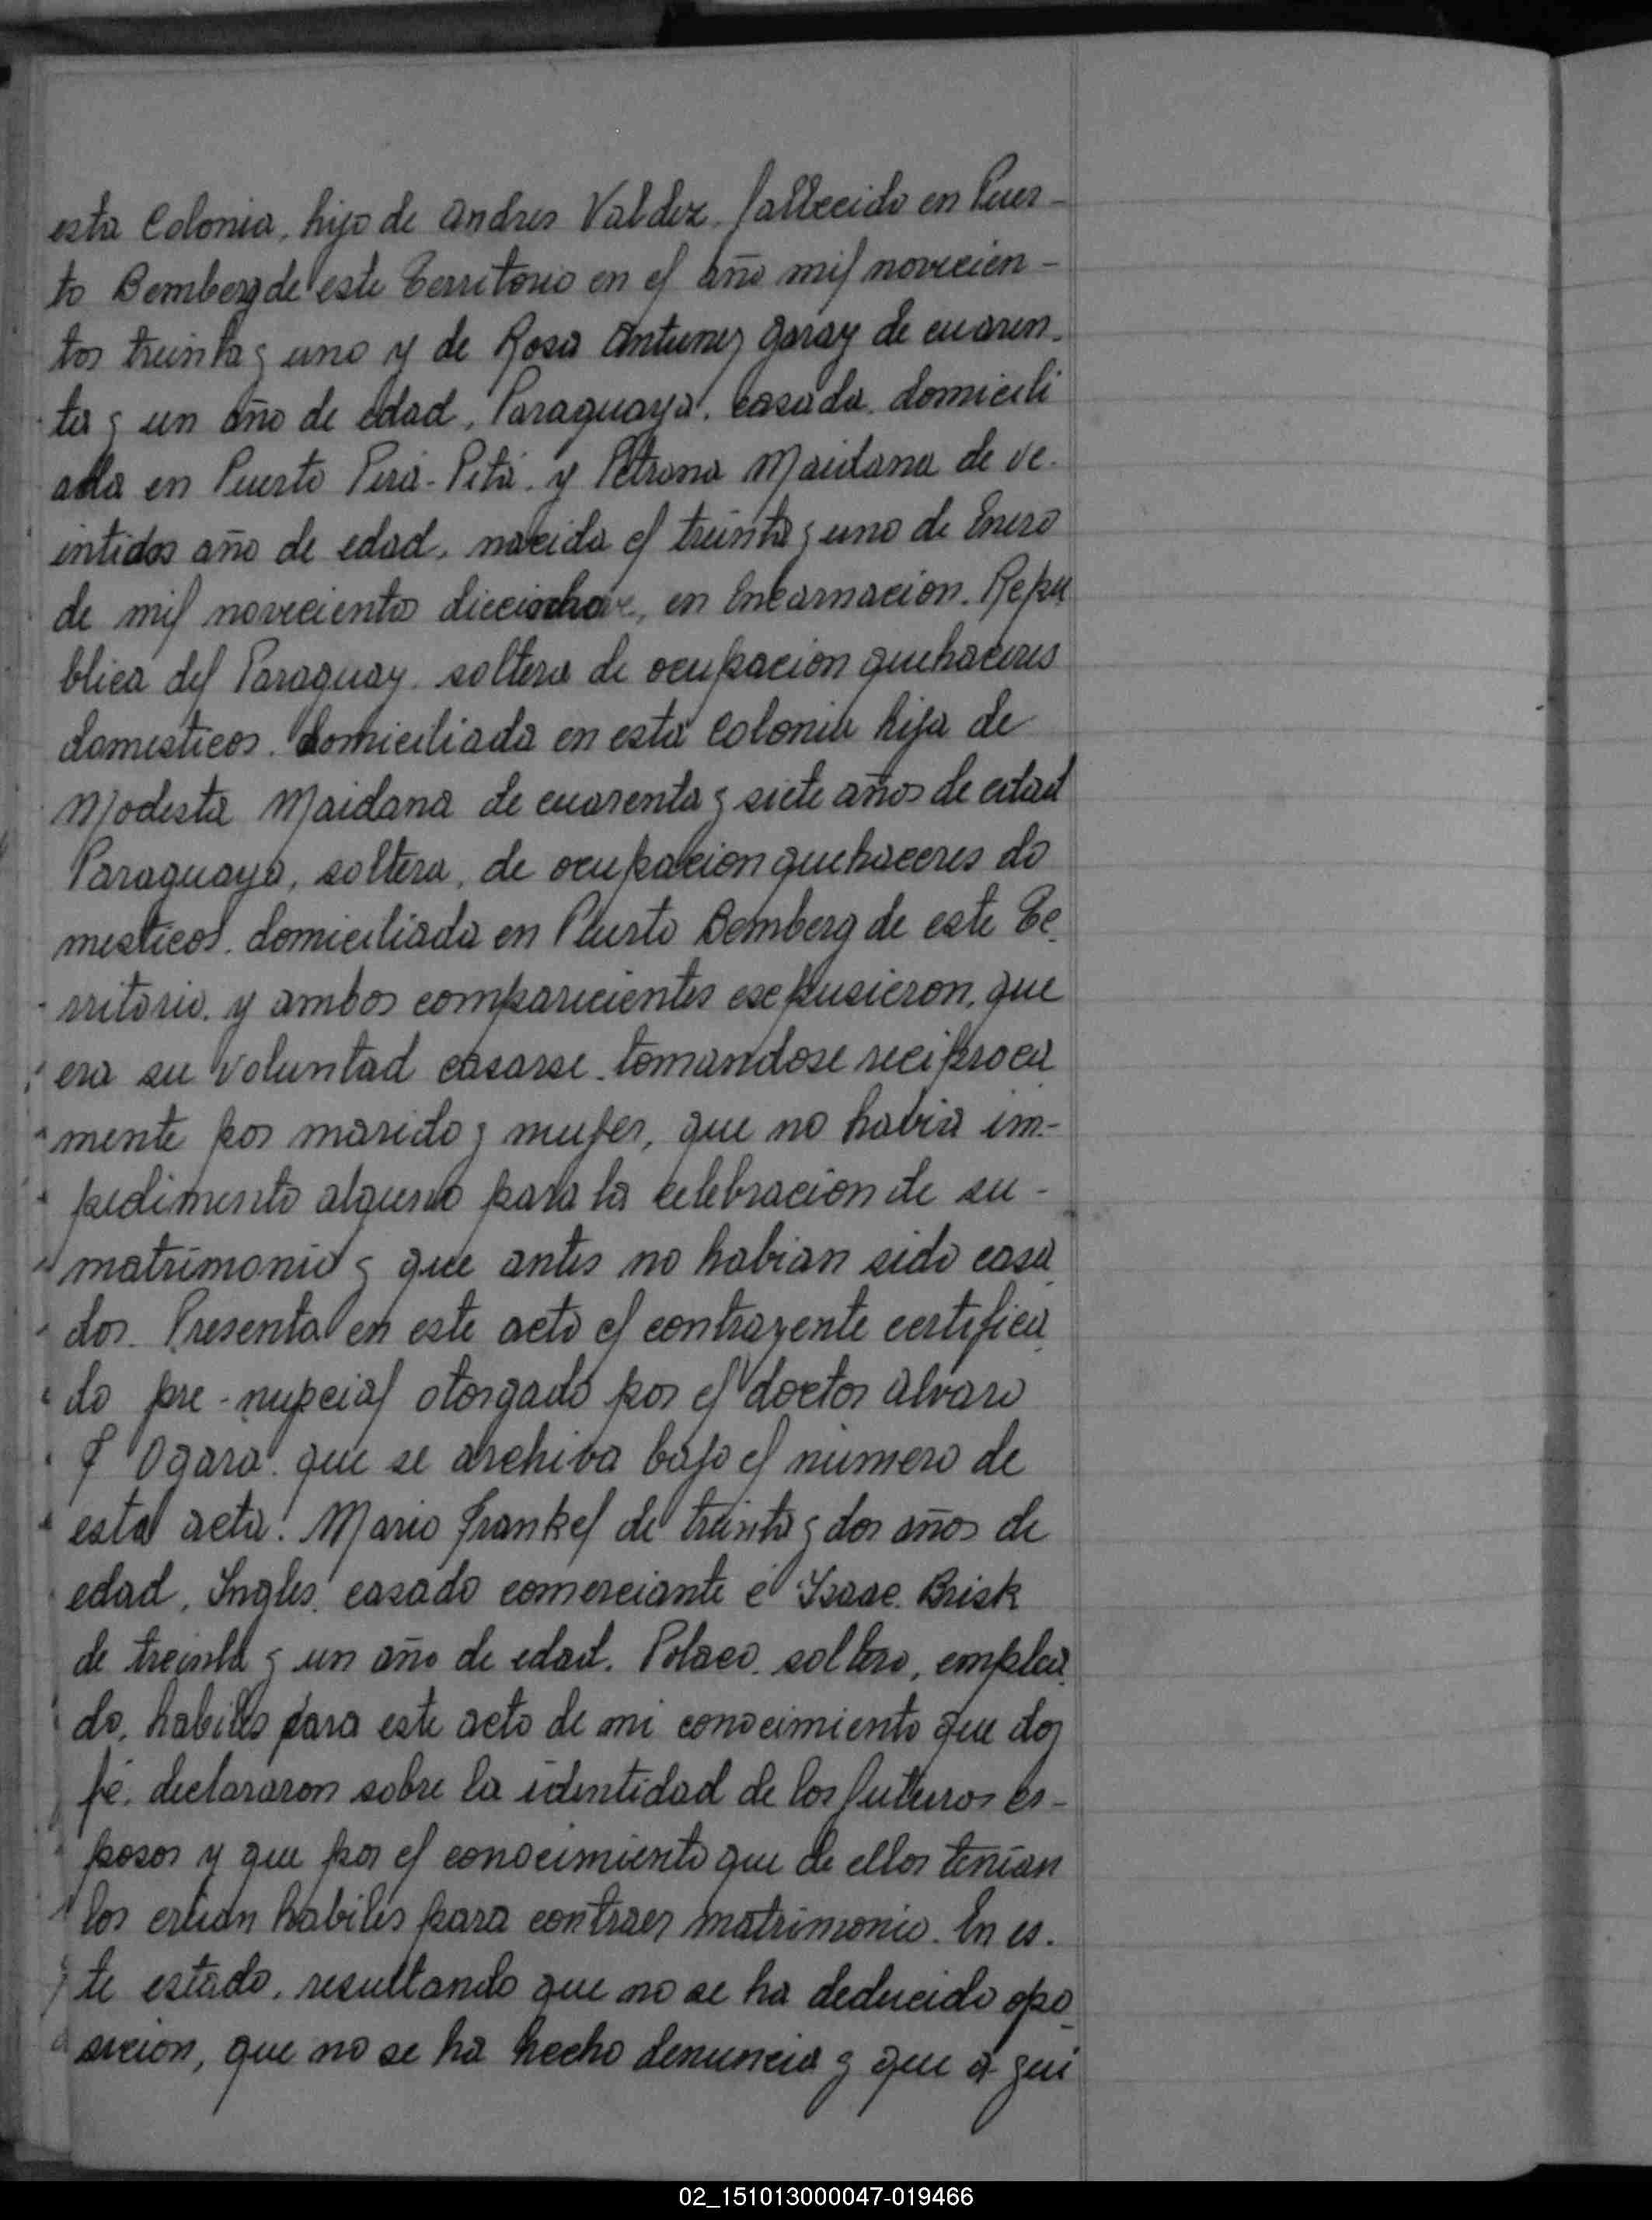 esta Colonia, hijo de Andres Valdez, fallecido en Puer-
to Bemberg de este Territorio en el año mil novecien-
tos treinta y uno y de Rosa Antunez Garay de cuaren-
ta y un año de edad, Paraguaya, casada, domicili
ada en Puerto Pirá-Pitá, y Petrona Maidana de ve-
intidos año de edad, nacida el treinta y uno de Enero
de mil noveciento en Encarnacion. Repu
blica del Paraguay, soltera de ocupacion quehaceres
domesticos. domiciliada en esta Colonia hija de
Modesta Maidana de cuarenta y siete años de edad
Paraguaya, soltera, de ocupacion quehaceres do
mesticos. domiciliada en Puerto Bemberg de este Te-
rritorio. y ambos comparecientes expusieron, que
era su voluntad casarse tomandose reciproca
mente por marido y mujer, que no habia im-
pedimento alguno para la celebracion de su-
matrimonio y que antes no habian sido casa
dos. Presenta en este acto el contrayente certifica
do pre-nupcial otorgado por el doctor Alvaro
Ogara que se archiva bajo el numero de
esta acta. Mario Frankel de treinta y dos años de
edad, Ingles, casado comerciante é Isaac Brisk
de treinta y un año de edad. Polaco, soltero, emplea
do, habiles para este acto de mi conocimiento que doy
fé, declararon sobre la identidad de los futuros es-
posos y que por el conocimiento que de ellos tenian
los creian habiles para contraer matrimonio. En es-
te estado, resultando que no se ha deducido opo
sicion, que no se ha hecho denuncia y que a qui
02_151013000047-019466